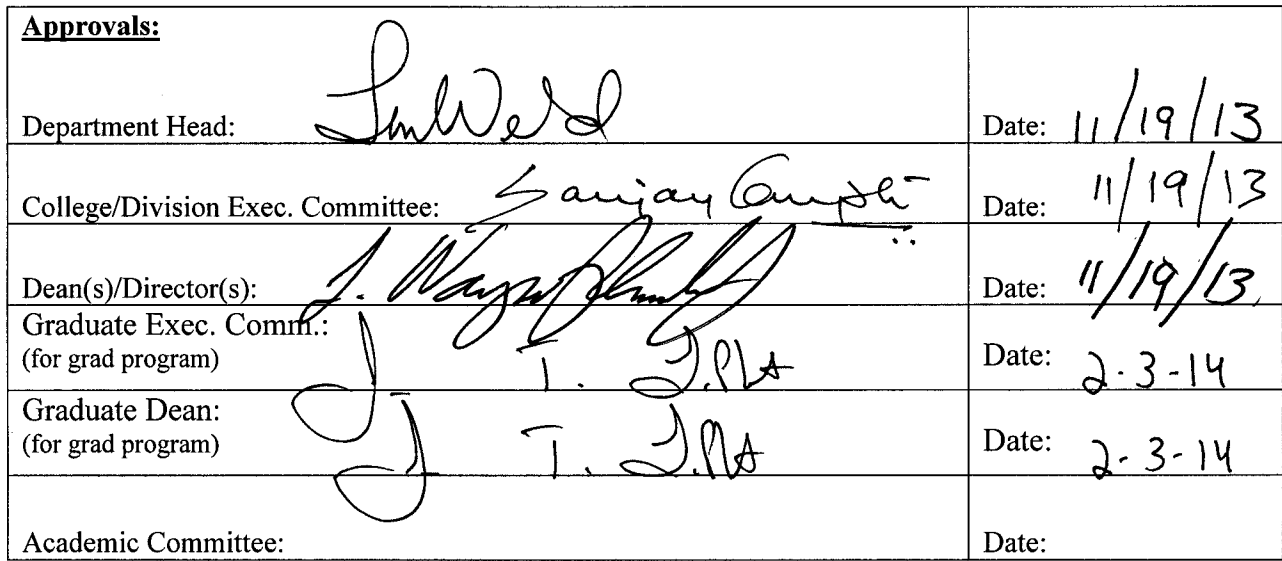 Approvals:
Department Head: Date: 11/19/13
College/Division Exec. Committee: Sanjay Date: 11/19/13
Dean(s)/Director(s): J. Wayne Date: 11/19/13
Graduate Exec. Comm.:
(for grad program) J. T. Date: 2-3-14
Graduate Dean:
(for grad program) J. T. Date: 2-3-14
Academic Committee: Date: